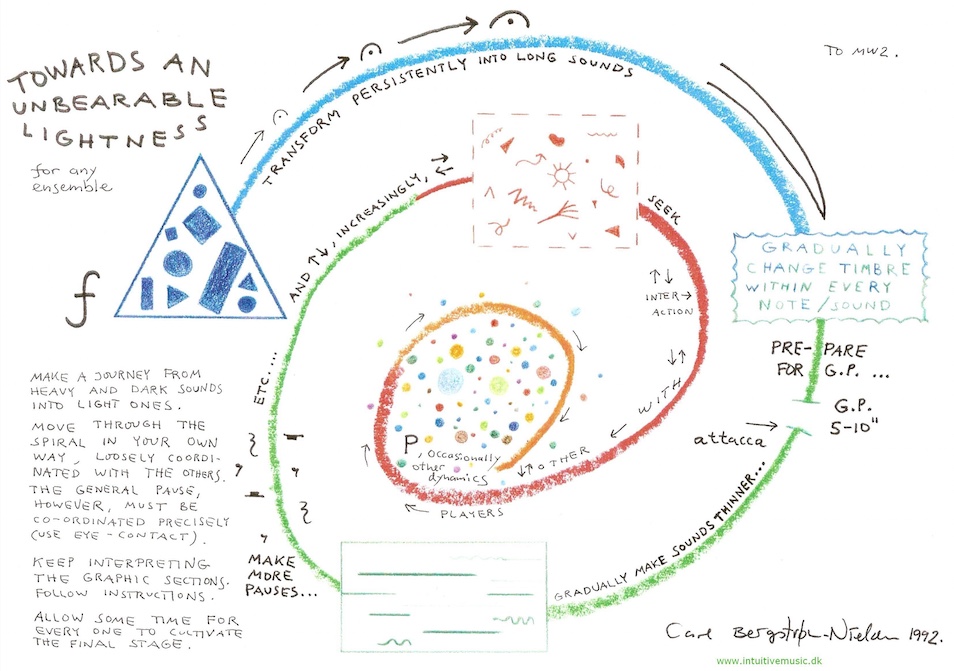 TOWARDS AN
UNBEARABLE
LIGHTNESS
for any
ensemble
TO MW2.
f
TRANSFORM PERSISTENTLY INTO LONG SOUNDS
GRADUALLY
CHANGE TIMBRE
WITHIN EVERY
NOTE/SOUND
PRE-PARE
FOR G.P. ...
G.P.
5-10"
attacca
GRADUALLY MAKE SOUNDS THINNER...
MAKE
MORE
PAUSES...
ETC....
AND ↑↓, INCREASINGLY,
SEEK
INTER
ACTION
WITH
OTHER
PLAYERS
P, OCCASIONALLY
other
dynamics
MAKE A JOURNEY FROM
HEAVY AND DARK SOUNDS
INTO LIGHT ONES.
MOVE THROUGH THE
SPIRAL IN YOUR OWN
WAY, LOOSELY COORDI-
NATED WITH THE OTHERS.
THE GENERAL PAUSE,
HOWEVER, MUST BE
CO-ORDINATED PRECISELY
(USE EYE-CONTACT).
KEEP INTERPRETING
THE GRAPHIC SECTIONS.
FOLLOW INSTRUCTIONS.
ALLOW SOME TIME FOR
EVERY ONE TO CULTIVATE
THE FINAL STAGE.
Carl Bergstrøm-Nielsen 1992.
www.intuitivemusic.dk